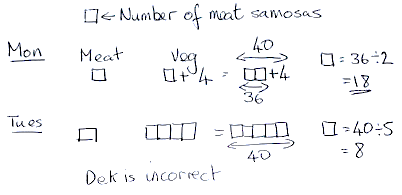 □ ← Number of meat samosas
40
Mon Meat Veg
□ □+4 = □□+4 □ = 36÷2
36 = 18
Tues □ □□□□ = □□□□□ □ = 40÷5
40 = 8
Dek is incorrect